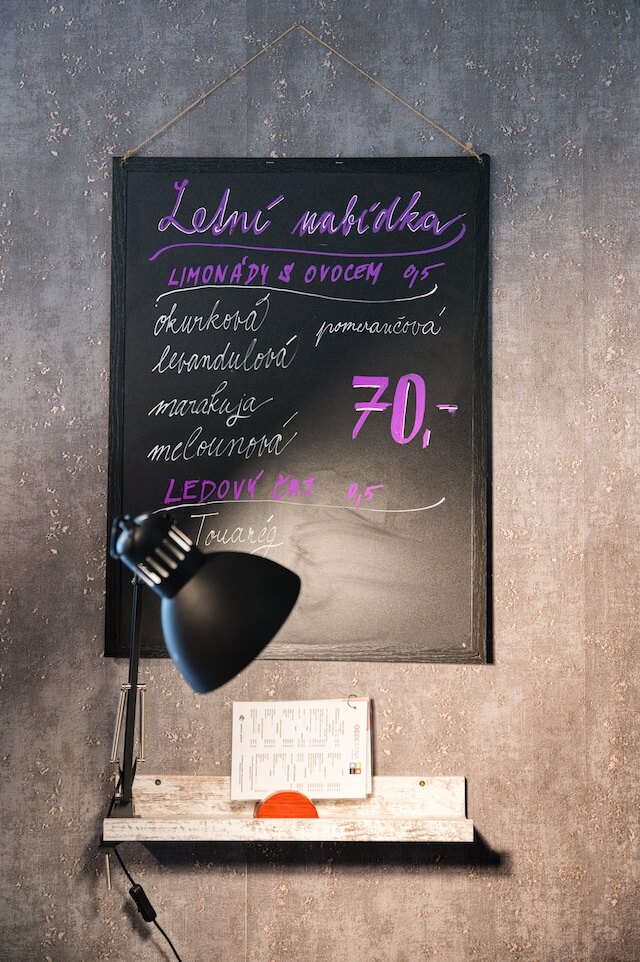 Letní nabídka
LIMONÁDY S OVOCEM 0,5
okurková
pomerančová
levandulová
marakuja
melounová
70,-
LEDOVÝ ČAJ 0,5
Touarég